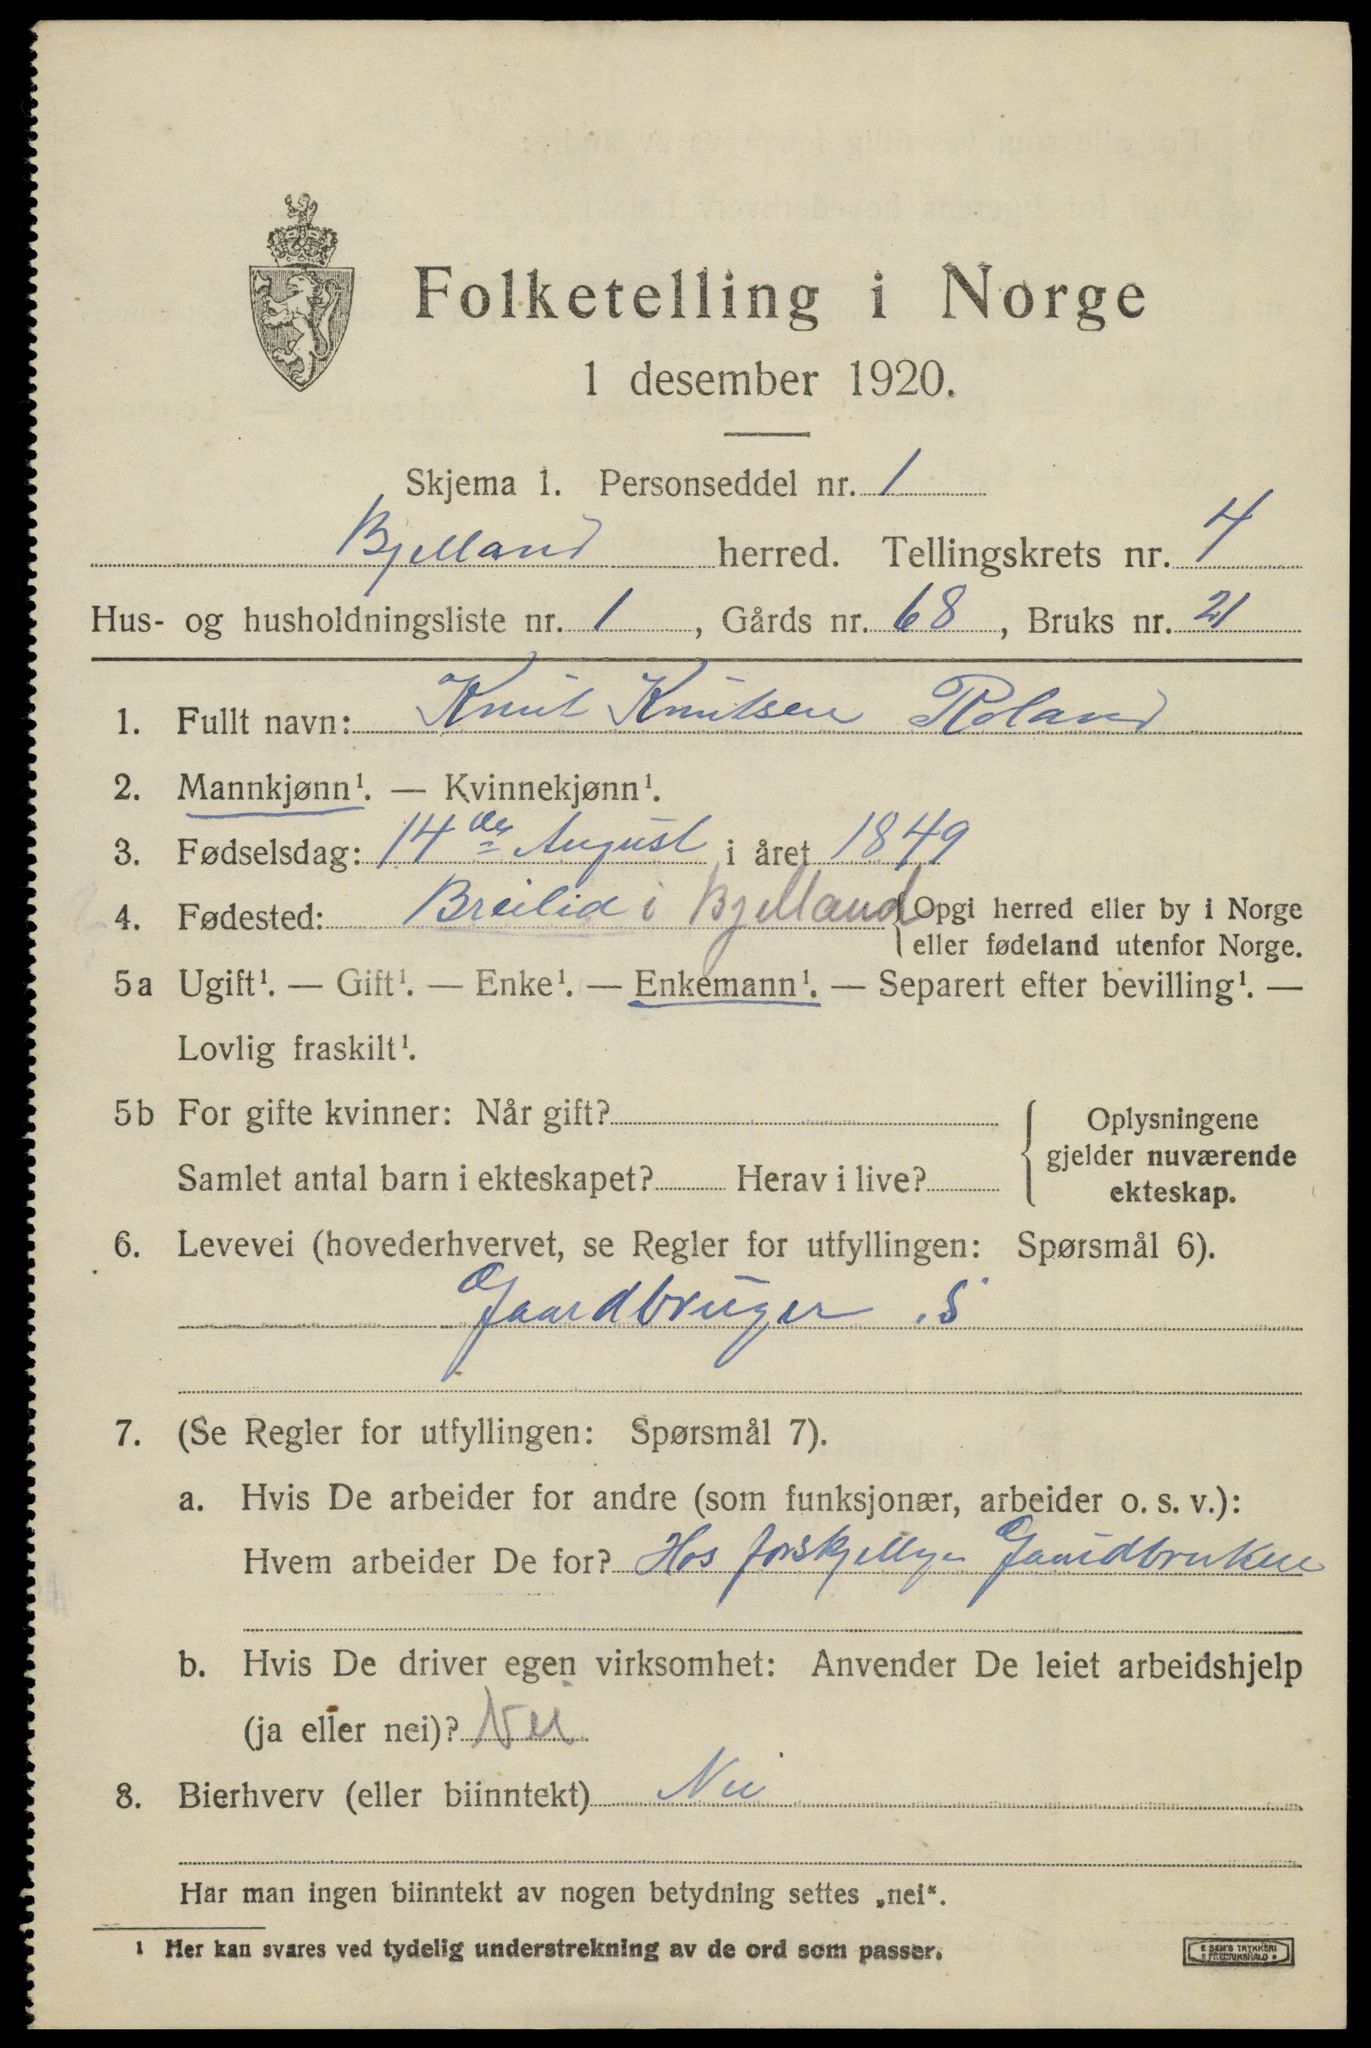 Folketelling i Norge
1 desember 1920.
Skjema 1. Personseddel nr. 1
Bjelland herred. Tellingskrets nr. 4
Hus- og husholdningsliste nr. 1, Gårds nr. 68, Bruks nr. 21
1. Fullt navn: Knut Knutsen Roland
2. Mannkjønn¹. — Kvinnekjønn¹.
3. Fødselsdag: 14de August i året 1849
4. Fødested: Breilid i Bjelland {Opgi herred eller by i Norge
eller fødeland utenfor Norge.
5a Ugift¹. — Gift¹. — Enke¹. — Enkemann¹. — Separert efter bevilling¹. —
Lovlig fraskilt¹.
5b For gifte kvinner: Når gift? Oplysningene
gjelder nuværende
Samlet antal barn i ekteskapet? Herav i live? ekteskap.
6. Levevei (hovederhvervet, se Regler for utfyllingen: Spørsmål 6).
Gaardbruger .S
7. (Se Regler for utfyllingen: Spørsmål 7).
a. Hvis De arbeider for andre (som funksjonær, arbeider o. s. v.):
Hvem arbeider De for? Hos forskjellige
b. Hvis De driver egen virksomhet: Anvender De leiet arbeidshjelp
(ja eller nei)? Nei
8. Bierhverv (eller biinntekt) Nei
Har man ingen biinntekt av nogen betydning settes „nei“.
1 Her kan svares ved tydelig understrekning av de ord som passer.
E SEM'S TRYKKERI
FREDRIKSHALD